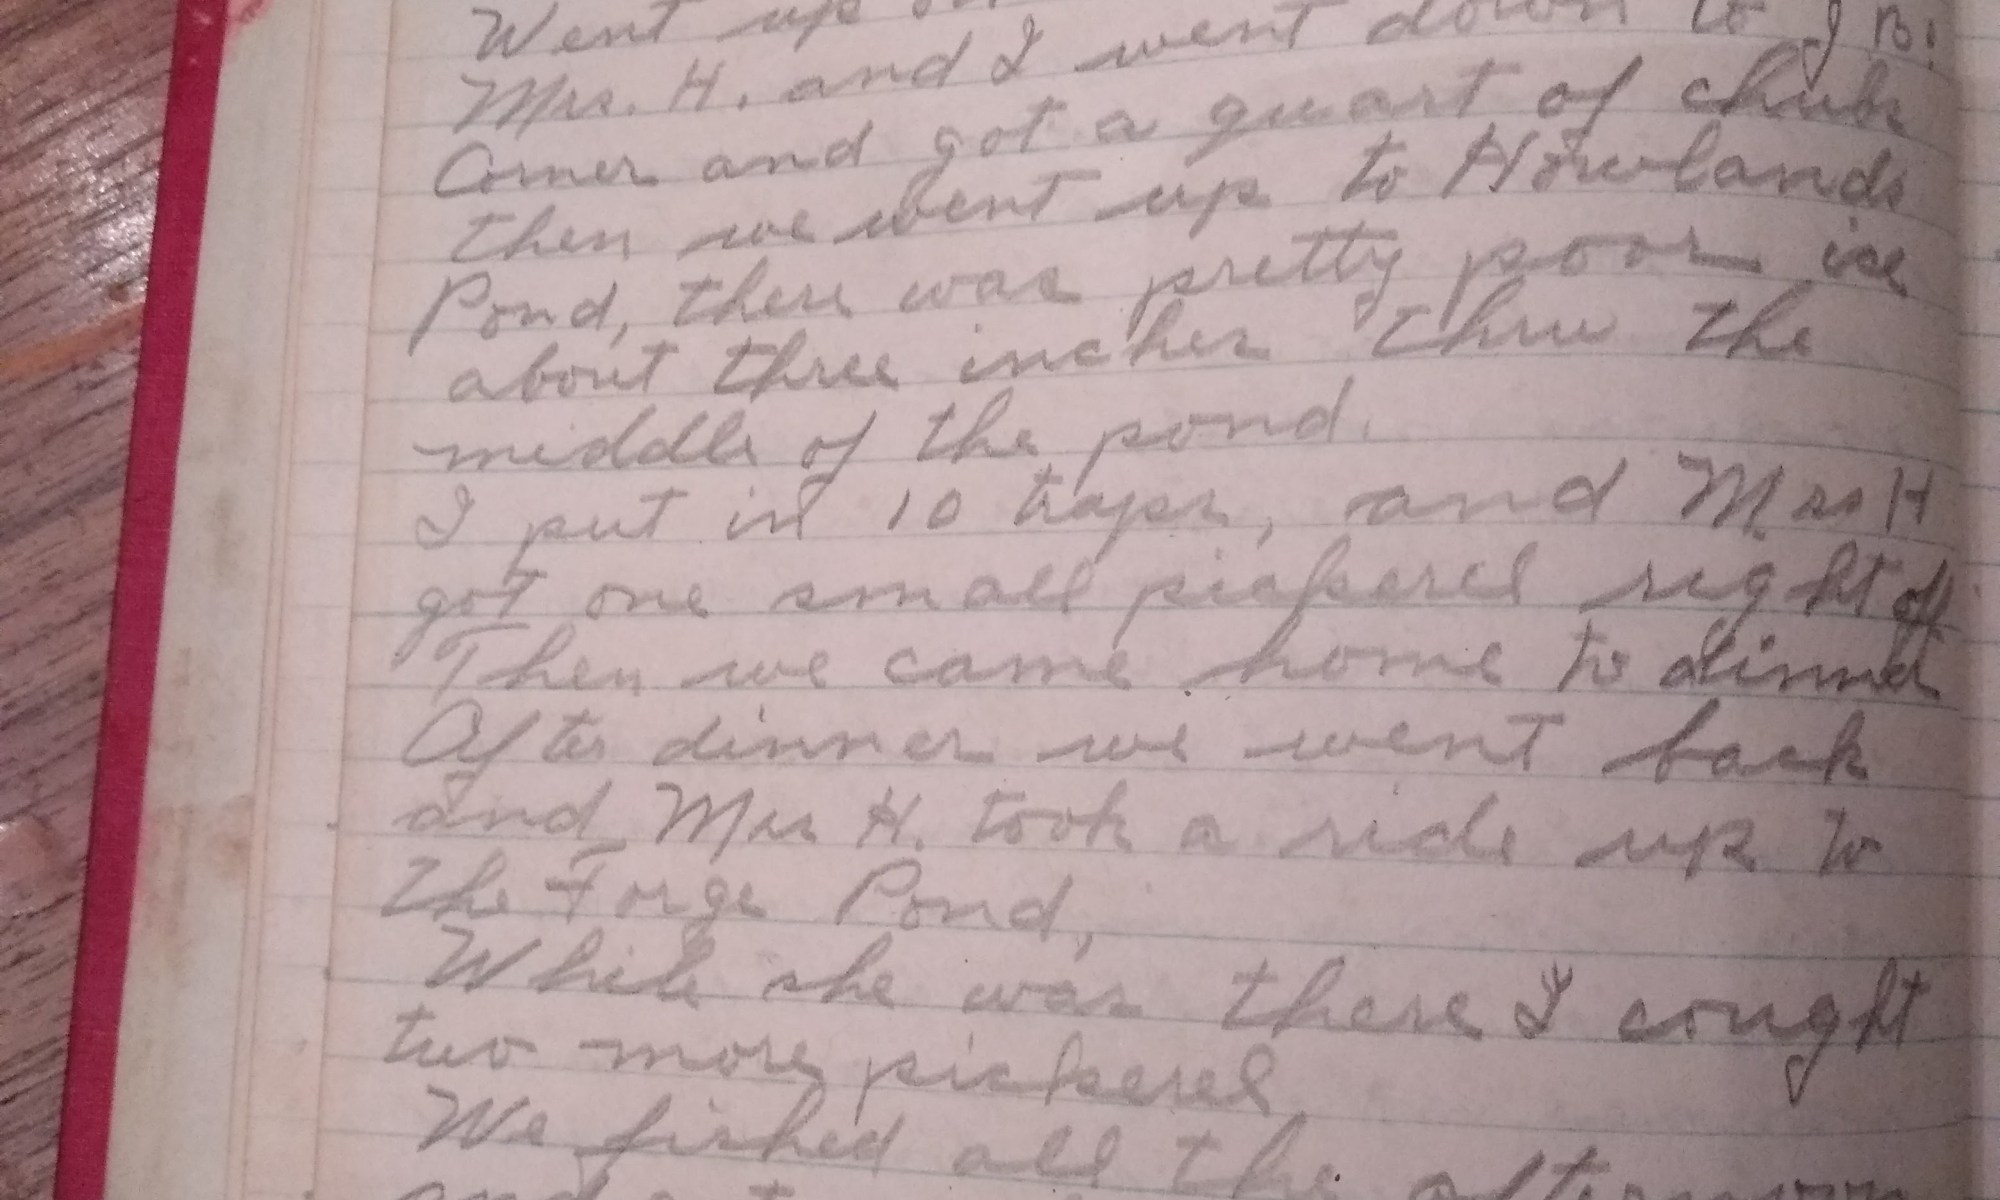 Went up
Mrs. H. and I went down to J B.
Corner and got a quart of chubs
then we went up to Howlands
Pond, there was pretty poor ice
about three inches thru the
middle of the pond.
I put in 10 traps, and Mrs H
got one small pickerel right off
Then we came home to dinner
After dinner we went back
and Mrs H. took a ride up to
the Forge Pond,
While she was there I cought
two more pickerel,
We fished all the afternoon